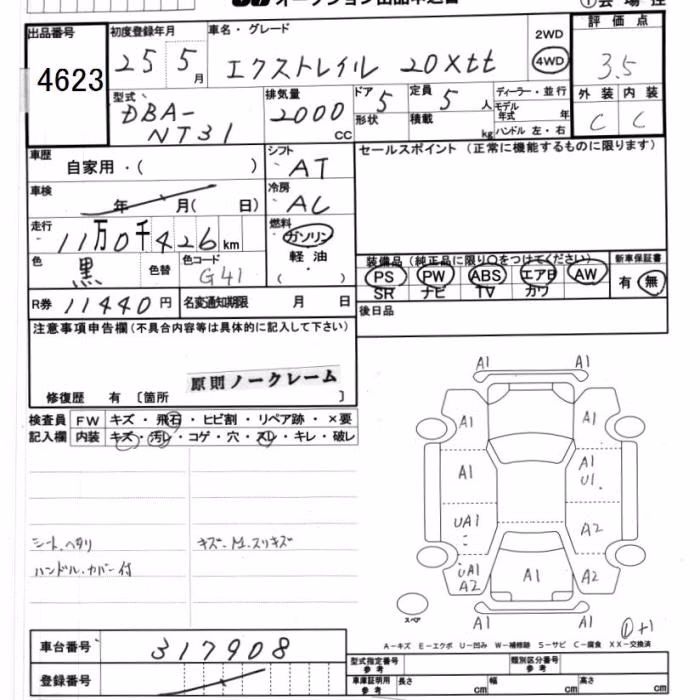 オークション出品申込書
①会場控
出品番号
4623
初度登録年月
25 5月
車名・グレード
エクストレイル 20Xtt
2WD
4WD
評価点
3.5
外装 内装
C C
型式
DBA-
NT31
排気量
2000
cc
ドア 5
形状
定員 5 人
積載 kg
ディーラー・並行
モデル年式 年
ハンドル 左・右
車歴
自家用・( )
シフト
AT
セールスポイント (正常に機能するものに限ります)
車検
年 月( 日)
冷房
AC
走行
11万0千426km
燃料
ガソリン
軽油
( ・ )
色
黒
色替
色コード
G41
装備品(純正品に限り○をつけてください)
PS PW ABS エアB AW
SR ナビ TV カワ
新車保証書
有 無
R券 11440円
名変通知期限 月 日
後日品
注意事項申告欄(不具合内容等は具体的に記入して下さい)
原則ノークレーム
修復歴 有 [箇所 ]
検査員
記入欄
FW キズ・飛石・ヒビ割・リペア跡・×要
内装 キズ・汚レ・コゲ・穴・スレ・キレ・破レ
シート.ヘタリ
ハンドル.カバー付
A1 A1
A1 A1
A1 A1
U1
UA1 A2
UA1
A2 A1 A2
A1 A1
スペア
①+1
A-キズ E-エクボ U-凹み W-補修跡 S-サビ C-腐食 XX-交換済
車台番号
317908
登録番号
型式指定番号
参考
類別区分番号
参考
車庫証明用
参考
長さ cm 幅 cm 高さ cm